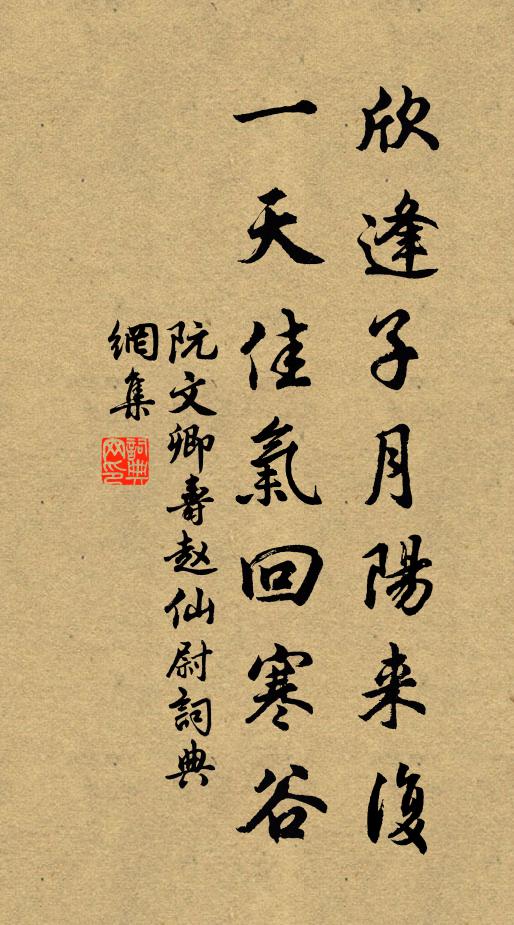 欣逢子月陽来復
一天佳氣回寒谷
阮文卿壽赵仙尉詞典
網集
詞典網印